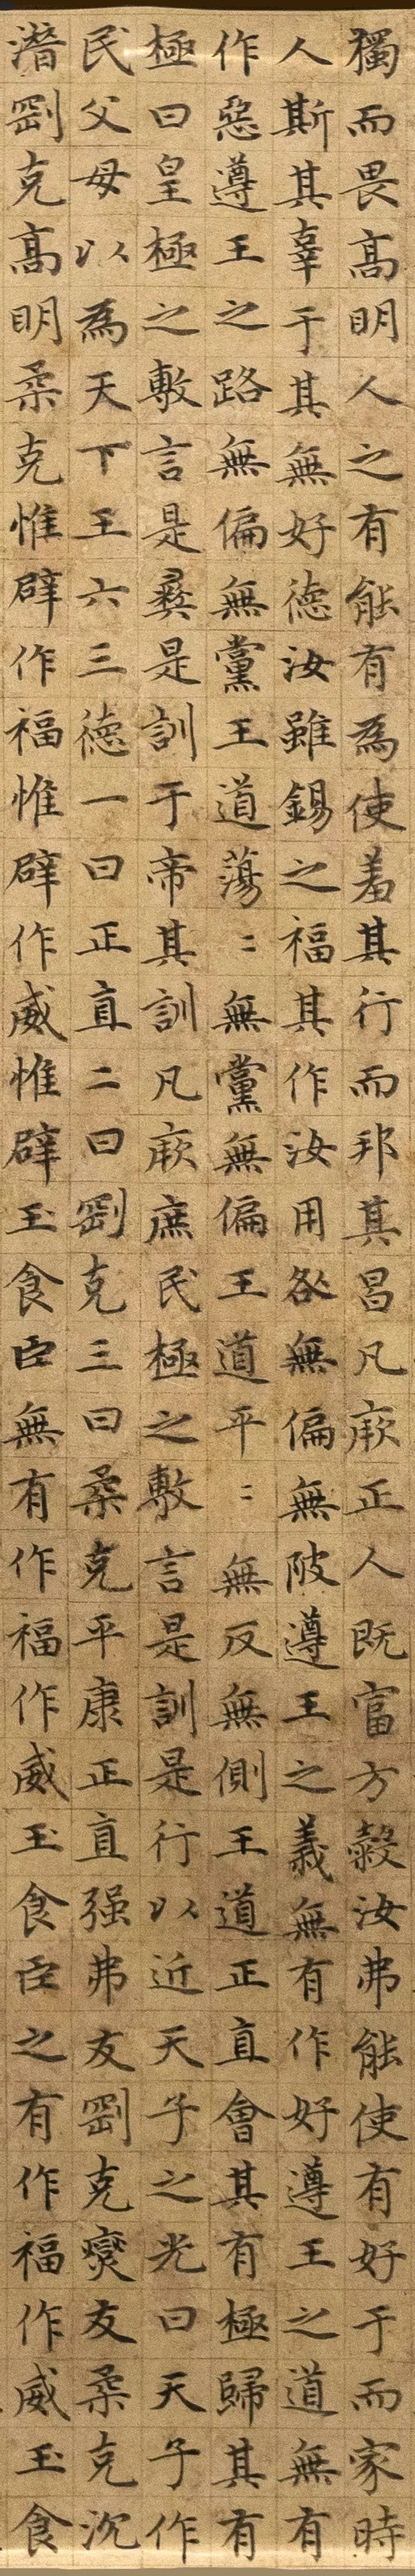 獨而畏髙明人之有能有為使羞其行而邦其昌凡厥正人既富方穀汝弗能使有好于而家時
人斯其辜于其無好德汝雖錫之福其作汝用咎無偏無陂遵王之義無有作好遵王之道無有
作惡遵王之路無偏無黨王道蕩〻無黨無偏王道平〻無反無側王道正直會其有極歸其有
極曰皇極之敷言是彝是訓于帝其訓凡厥庶民極之敷言是訓是行以近天子之光曰天子作
民父母以為天下王六三德一曰正直二曰剛克三曰柔克平康正直强弗友剛克燮友柔克沉
潛剛克髙明柔克惟辟作福惟辟作威惟辟玉食臣無有作福作威玉食臣之有作福作威玉食